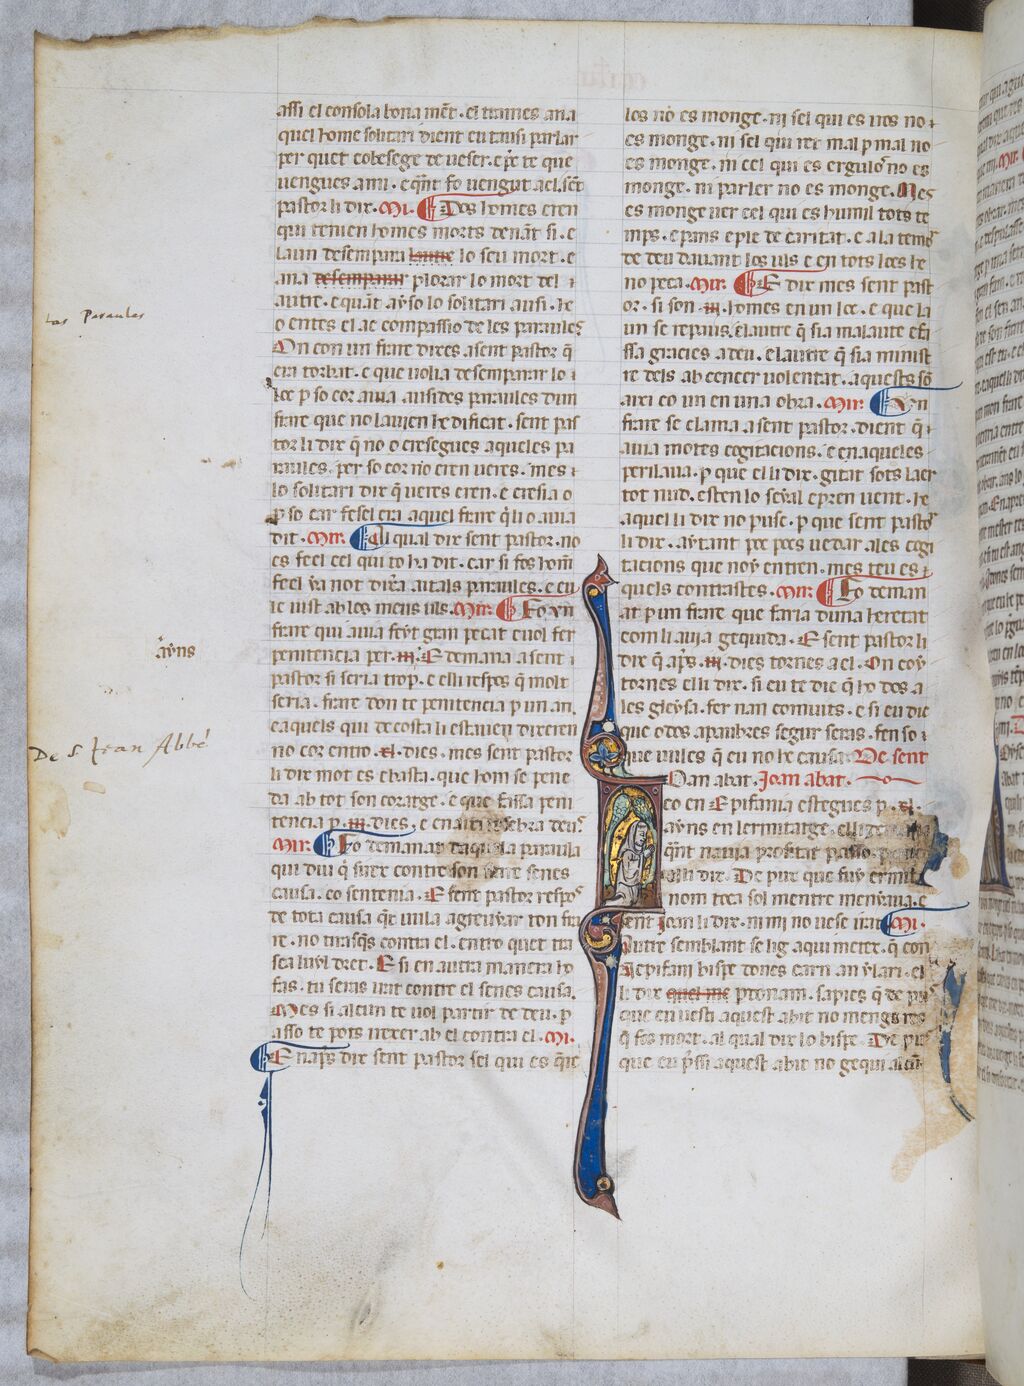 assi el consola bona mēt. el trames ana
quel home solitari dient eu taus parlar
per quet cobesege de veser. e pͬe te que
vengues a mi. e q̄nt fo vengut ael. sēt
pastor li dix. Mi. Dos homes eren
qui tenien homes morts denāt si. e
la un desempara lo seu mort. e
ana desemparar plorar lo mort del
autre. e quāt ayso lo solitari ausi. he
o entes el ac compassio de les paraules
On con un frare dixes a sent pastor q̄
era torbat. e que volia desemparar lo
loc p so cor avia ausides paraules dun
frare que no lavien hedificat. sent pas
tor li dix q̄ no o cresegues aqueles pa
raules. per so cor no eren veres. mes
lo solitari dix q̄ veres eren. e cresia o
p so car fesel era aquel frare q̄ li o avia
dit. Mir. Al qual dix sent pastor. no
es feel cel qui to ha dit. car si fos hom
feel ya not dira aitals paraules. e eu
le vist ab los meus uls. Mir. Fo un
frare qui avia feyt gran pecat e vol fer
penitencia per .iii. E demana a sent
pastor si seria trop. e elli respos q̄ molt
seria. frare don te penitencia p un an.
e aquels qui de costa li estavien dixeren
no cor entro .xl. dies. mes sent pastor
li dix mot es e basta. que hom se pene
da ab tot son coratge. e que fassa peni
tencia p .iii. dies. e enaixi rebra deus
Mir. Fo demanat daquela paraula
qui diu q̄ sure contre son frare senes
causa. co sentenia. E sent pastor respos
de tota causa que vula agreuyar ton fra
re. no tirasq̄s contra el. entro quet tra
sea luyl dret. E si en autra manera ho
fas. tu seras irat contre el senes causa.
Mes si alcun te vol partir de deu. p
asso te pots irexer ab el contra el. Mi.
Enap̄s dix sent pastor sel qui es q̄re
los no es monge. ni sel qui es iros no
es monge. ni sel qui ret mal p mal no
es monge. ni cel qui es ergulos no es
monge. ni parler no es monge. Mes
es monge ver cel qui es humil tots te
mps. e pans e ple de caritat. e a la temor
de deu davant los uls e en tots locs he
no peca. Mir. E dix mes sent past
or. si son .iii. homes en un loc. e que la
un se repaus. e lautre q̄ sia malaute e fa
ssa gracies a deu. e lautre q̄ sia minist
re dels ab cencer volentat. aquests sō
axi co un en una obra. Mir. Un
frare se clama a sent pastor. dient q̄
avia moltes cogitacions. e en aqueles
perilava. p que el li dix. gitat sots laer
tot nud. esten lo seyal e pren vent. he
aquel li dix no puse. p que sent pastor
li dix. aytant poc pots vedar a les cogi
tacions que noy entren. mes teu es
quels contrastes. Mir. Fo deman
at p un frare que faria duna heretat
com li avia gequida. E sent pastor li
dix q̄ ap̄s .iii. dies tornes a el. On coy
tornes el li dix. si eu te dic q̄ ho dos a
les gleysa. fer nan convits. e si eu dic
que o des a parens segur seras. fen so
que vules q̄ eu no he causa. De sent
Joan abat. Joan abat.
co en Epifania estegues p .xl.
ayns en lermitatge. elli
q̄nt navia profitat
elli dix. De pux que fuy ermita
nom toca sol mentre menyava. e
sent Joan li dix. ni mi no ve se irat Mi.
Autre semblant se lig aqui metex. q̄ con
Aepifani bisbe dones carn an ylari. el
li dix quel me perdonam. sapies q̄ de pus
que eu vesti aquest abit no mengs res
q̄ fos mort. al qual dix lo bisbe. De pus
que eu p̄ssi aquest abit no gequi alcu
Las Paraules
ayns
De S. Jean Abbé